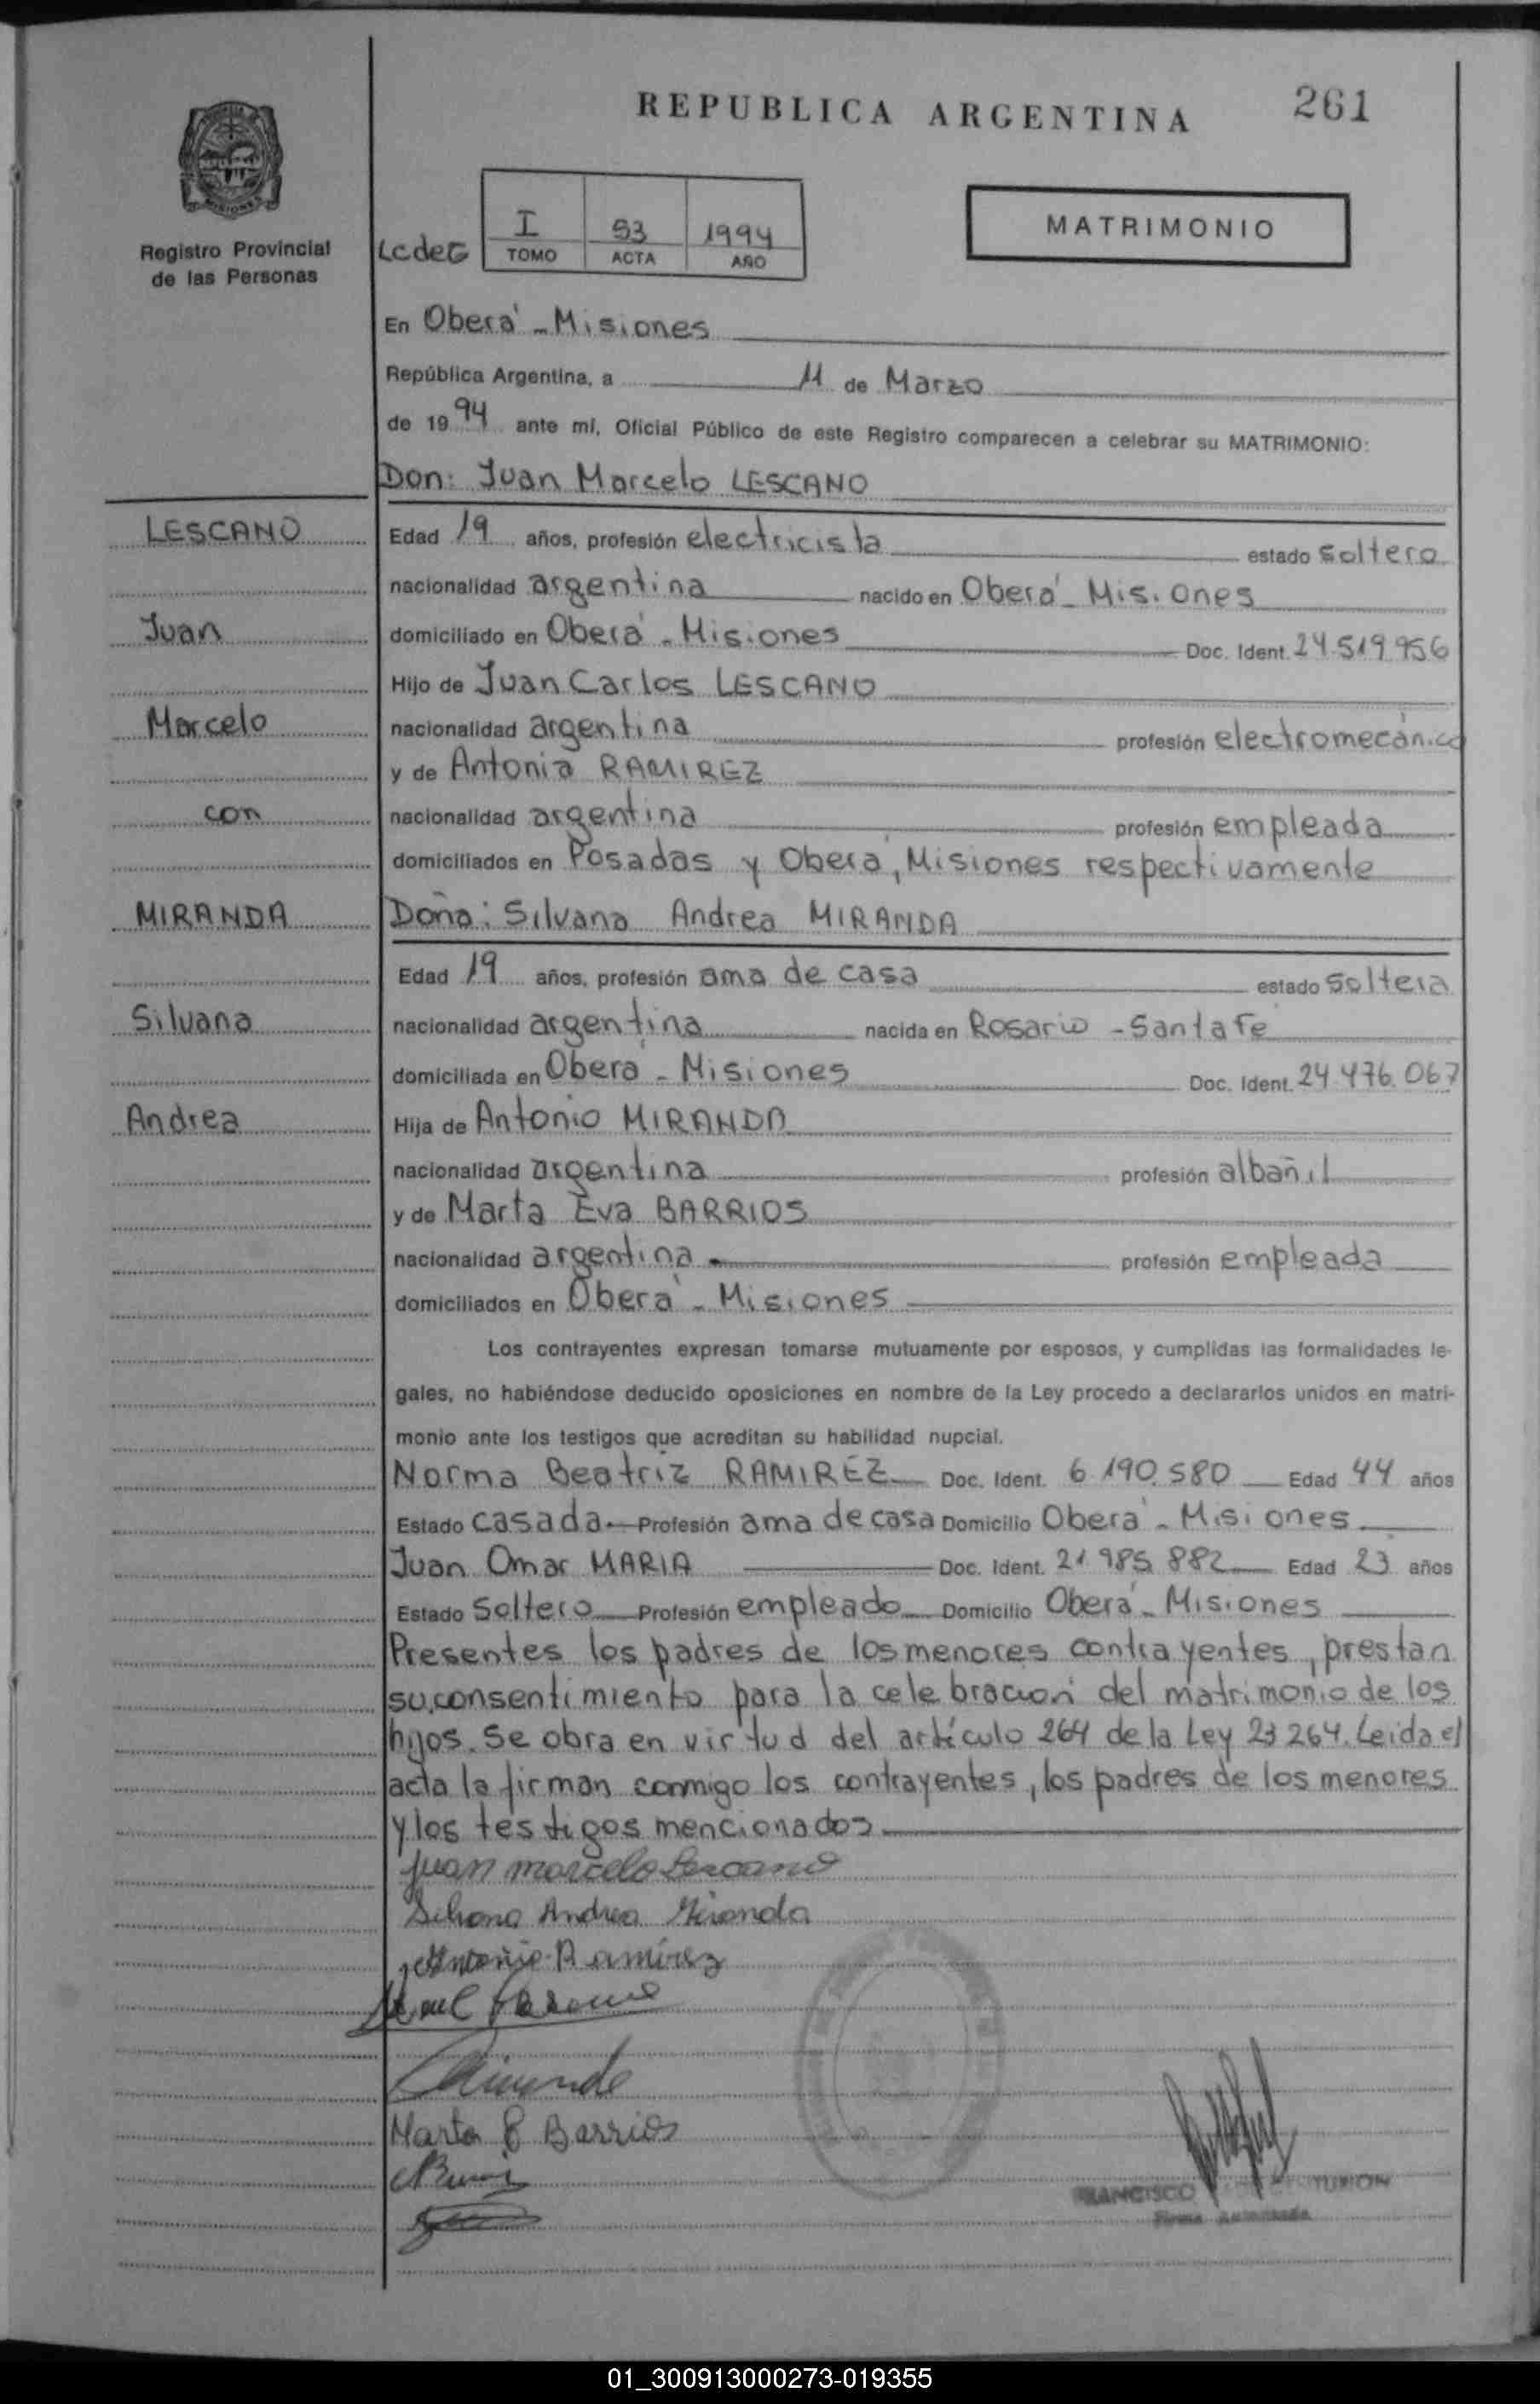 REPUBLICA ARGENTINA
261
MISIONES
Registro Provincial
de las Personas
I 53 1994
TOMO ACTA AÑO
MATRIMONIO
En Oberá - Misiones
República Argentina, a 11 de Marzo
de 1994 ante mí, Oficial Público de este Registro comparecen a celebrar su MATRIMONIO:
Don: Juan Marcelo LESCANO
LESCANO
Juan
Marcelo
con
MIRANDA
Silvana
Andrea
Edad 19 años, profesión electricista estado soltero
nacionalidad argentina nacido en Oberá - Misiones
domiciliado en Oberá - Misiones Doc. Ident. 24.519.956
Hijo de Juan Carlos LESCANO
nacionalidad argentina profesión electromecánico
y de Antonia RAMIREZ
nacionalidad argentina profesión empleada
domiciliados en Posadas y Oberá, Misiones respectivamente
Doña: Silvana Andrea MIRANDA
Edad 19 años, profesión ama de casa estado soltera
nacionalidad argentina nacida en Rosario - Santa Fe
domiciliada en Oberá - Misiones Doc. Ident. 24.476.067
Hija de Antonio MIRANDA
nacionalidad argentina profesión albañil
y de Marta Eva BARRIOS
nacionalidad argentina profesión empleada
domiciliados en Oberá - Misiones
Los contrayentes expresan tomarse mutuamente por esposos, y cumplidas las formalidades le-
gales, no habiéndose deducido oposiciones en nombre de la Ley procedo a declararlos unidos en matri-
monio ante los testigos que acreditan su habilidad nupcial.
Norma Beatriz RAMIREZ Doc. Ident. 6.190.580 Edad 44 años
Estado casada Profesión ama de casa Domicilio Oberá - Misiones
Juan Omar MARIA Doc. Ident. 21.985.882 Edad 23 años
Estado soltero Profesión empleado Domicilio Oberá - Misiones
Presentes los padres de los menores contrayentes, prestan
su consentimiento para la celebración del matrimonio de los
hijos. Se obra en virtud del artículo 264 de la Ley 23264. Leida el
acta la firman conmigo los contrayentes, los padres de los menores
y los testigos mencionados
Juan Marcelo Lescano
Silvana Andrea Miranda
Antonia Ramírez
Miranda
Marta E Barrios
FRANCISCO
Firma Autorizada
01_300913000273-019355